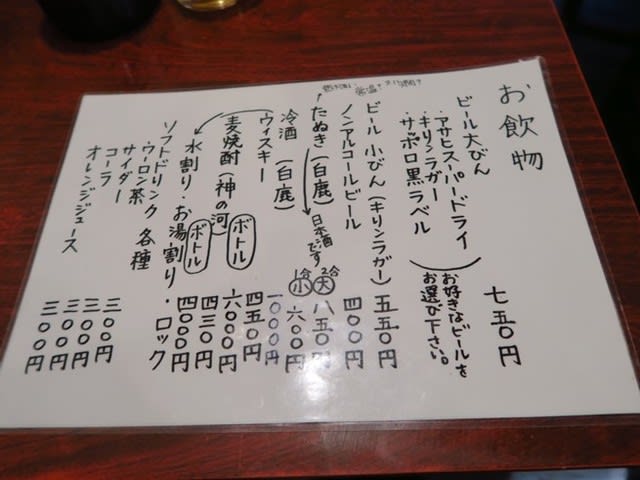 お飲物
ビール大びん 七五〇円
・アサヒスーパードライ
・キリンラガー
・サッポロ黒ラベル
お好きなビールを
お選び下さい。
ビール 小びん(キリンラガー) 五五〇円
ノンアルコールビール 四〇〇円
たぬき(白鹿) 日本酒です 2合 大 八五〇円
1合 小 六〇〇円
冷酒(白鹿) 一〇〇〇円
ウィスキー 四五〇円
麦焼酎(神の河) ボトル 六〇〇〇円
四三〇円
水割り・お湯割り・ロック
ボトル 四〇〇〇円
ソフトドリンク 各種
ウーロン茶 三〇〇円
サイダー 三〇〇円
コーラ 三〇〇円
オレンジジュース 三〇〇円